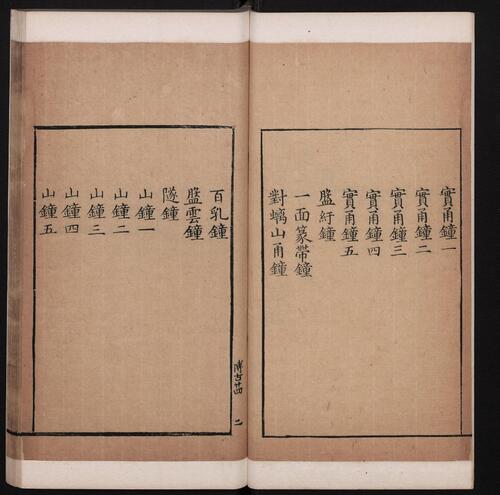 實甬鐘一
實甬鐘二
實甬鐘三
實甬鐘四
實甬鐘五
盤紆鐘
一面篆帶鐘
對螭山甬鐘
百乳鐘
盤雲鐘
隧鐘
山鐘一
山鐘二
山鐘三
山鐘四
山鐘五
博古廿四 二